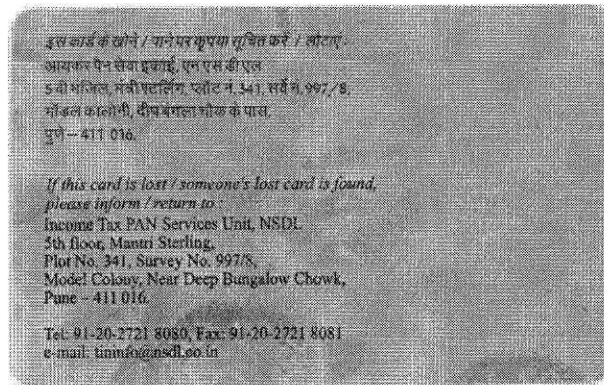 इस कार्ड के खोने / पाने पर कृपया सूचित करें / लौटाएं :
आयकर पैन सेवा इकाई, एन एस डी एल
5 वी मंजिल, मंत्री स्टर्लिंग, प्लॉट नं. 341, सर्वे नं. 997/8,
मॉडल कालोनी, दीप बंगला चौक के पास,
पुणे – 411 016.
If this card is lost / someone's lost card is found,
please inform / return to :
Income Tax PAN Services Unit, NSDL
5th floor, Mantri Sterling,
Plot No. 341, Survey No. 997/8,
Model Colony, Near Deep Bungalow Chowk,
Pune – 411 016.
Tel: 91-20-2721 8080, Fax: 91-20-2721 8081
e-mail: tininfo@nsdl.co.in